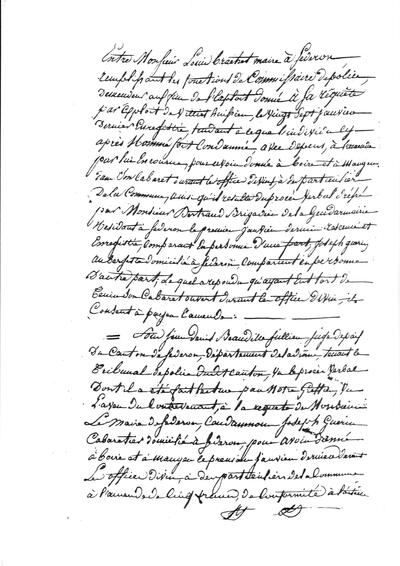 Entre Monsieur Louis Crachet maire à Séderon
remplissant les fonctions de Commissaire de police,
demandeur aux fins de l'exploit donné à sa requête
par exploit de huissier, le vingt sept janvier
dernier Enregistré, tendant à ce que l'individu ci
après Nommé soit Condamné, avec dépens, à l'amende
par lui Encourue, pour avoir donné à boire et à manger
dans son Cabaret durant le office divin, à des particuliers
De la Commune, ainsi qu'il résulte du procès Verbal dressé
par Monsieur Bertrand Brigadier de la Gendarmerie
Résidant à Séderon le premier janvier dernier
Enregistré, Comparant en personne D'une part, joseph guerin
Aubergiste domicilié à Séderon, Comparant en personne
D'autre part, Lequel a répondu qu'ayant Eut tort de
Tenir son Cabaret ouvert durant le office Divin, il
Consent à payer l'amende:
= Nous jean Denis jullien juge de paix
Du Canton de Séderon, département de la drome, tenant le
Tribunal de police dudit Canton, Vu le procès Verbal
Dont il a été fait lecture par Notre Greffier, Vu
L'aveu du Contrevenant, à la requête de Monsieur
Le Maire de Séderon, Condamnons joseph Guerin
Cabaretier domicilié à Séderon pour avoir donné
à boire et à manger le premier janvier dernier durant
Le office Divin, à des particuliers de la Commune
à l'amende de Cinq francs, de Conformité à l'article